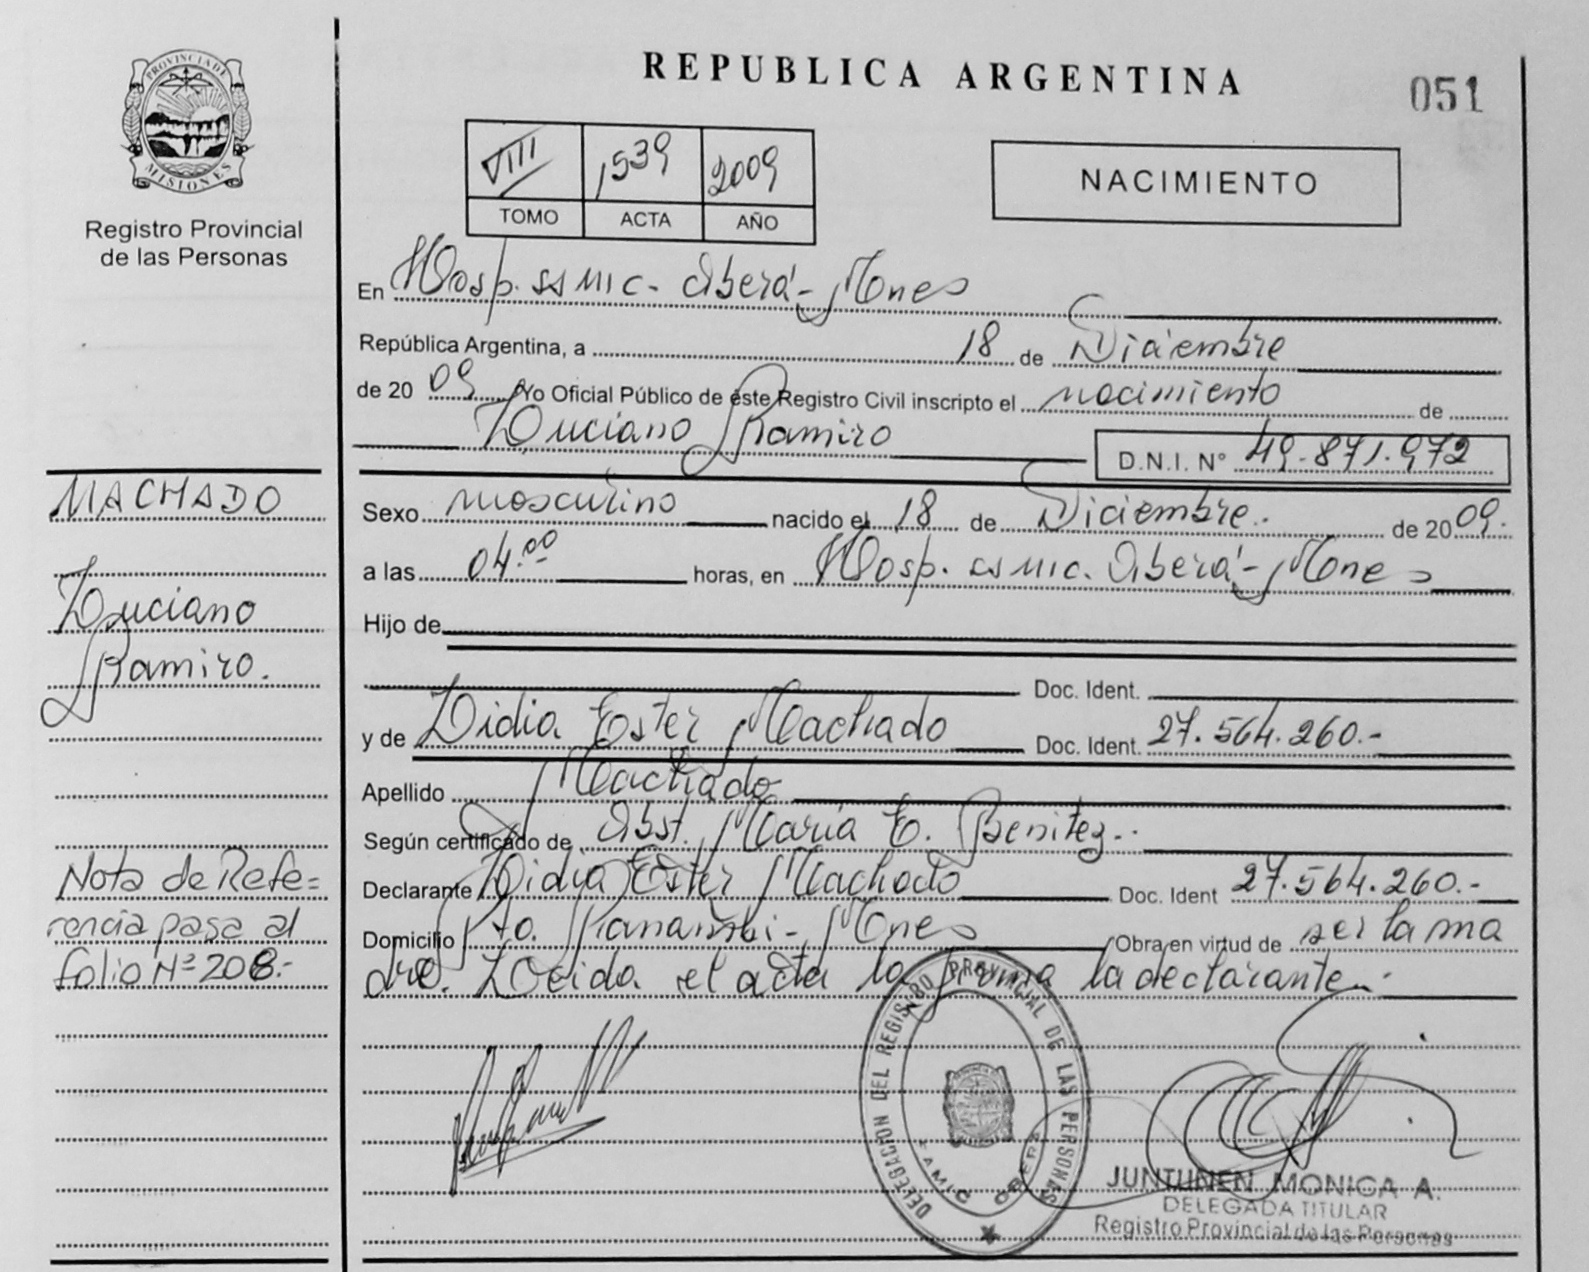 PROVINCIA DE
MISIONES
Registro Provincial
de las Personas
REPUBLICA ARGENTINA
051
VIII 1539 2009
TOMO ACTA AÑO
NACIMIENTO
En Hosp. SAMIC. Oberá - Mnes
República Argentina, a 18 de Diciembre
de 20 09 Yo Oficial Público de éste Registro Civil inscripto el nacimiento de
Luciano Ramiro D.N.I. N° 49.871.972
Sexo masculino nacido el 18 de Diciembre. de 20 09.
a las 04.00 horas, en Hosp. SAMIC. Oberá - Mnes
Hijo de
Doc. Ident.
y de Lidia Ester Machado Doc. Ident. 27.564.260.-
Apellido Machado
Según certificado de Obst. María E. Benitez.-
Declarante Lidia Ester Machado Doc. Ident 27.564.260.-
Domicilio Pto. Panambi - Mnes Obra en virtud de ser la ma
dre. Leida el acta la firma la declarante.-
MACHADO
Luciano
Ramiro.
Nota de Refe=
rencia pasa al
folio Nº 208.-
DELEGACION DEL REGISTRO PROVINCIAL DE LAS PERSONAS
SAMIC OBERA
JUNTUNEN MONICA A.
DELEGADA TITULAR
Registro Provincial de las Personas